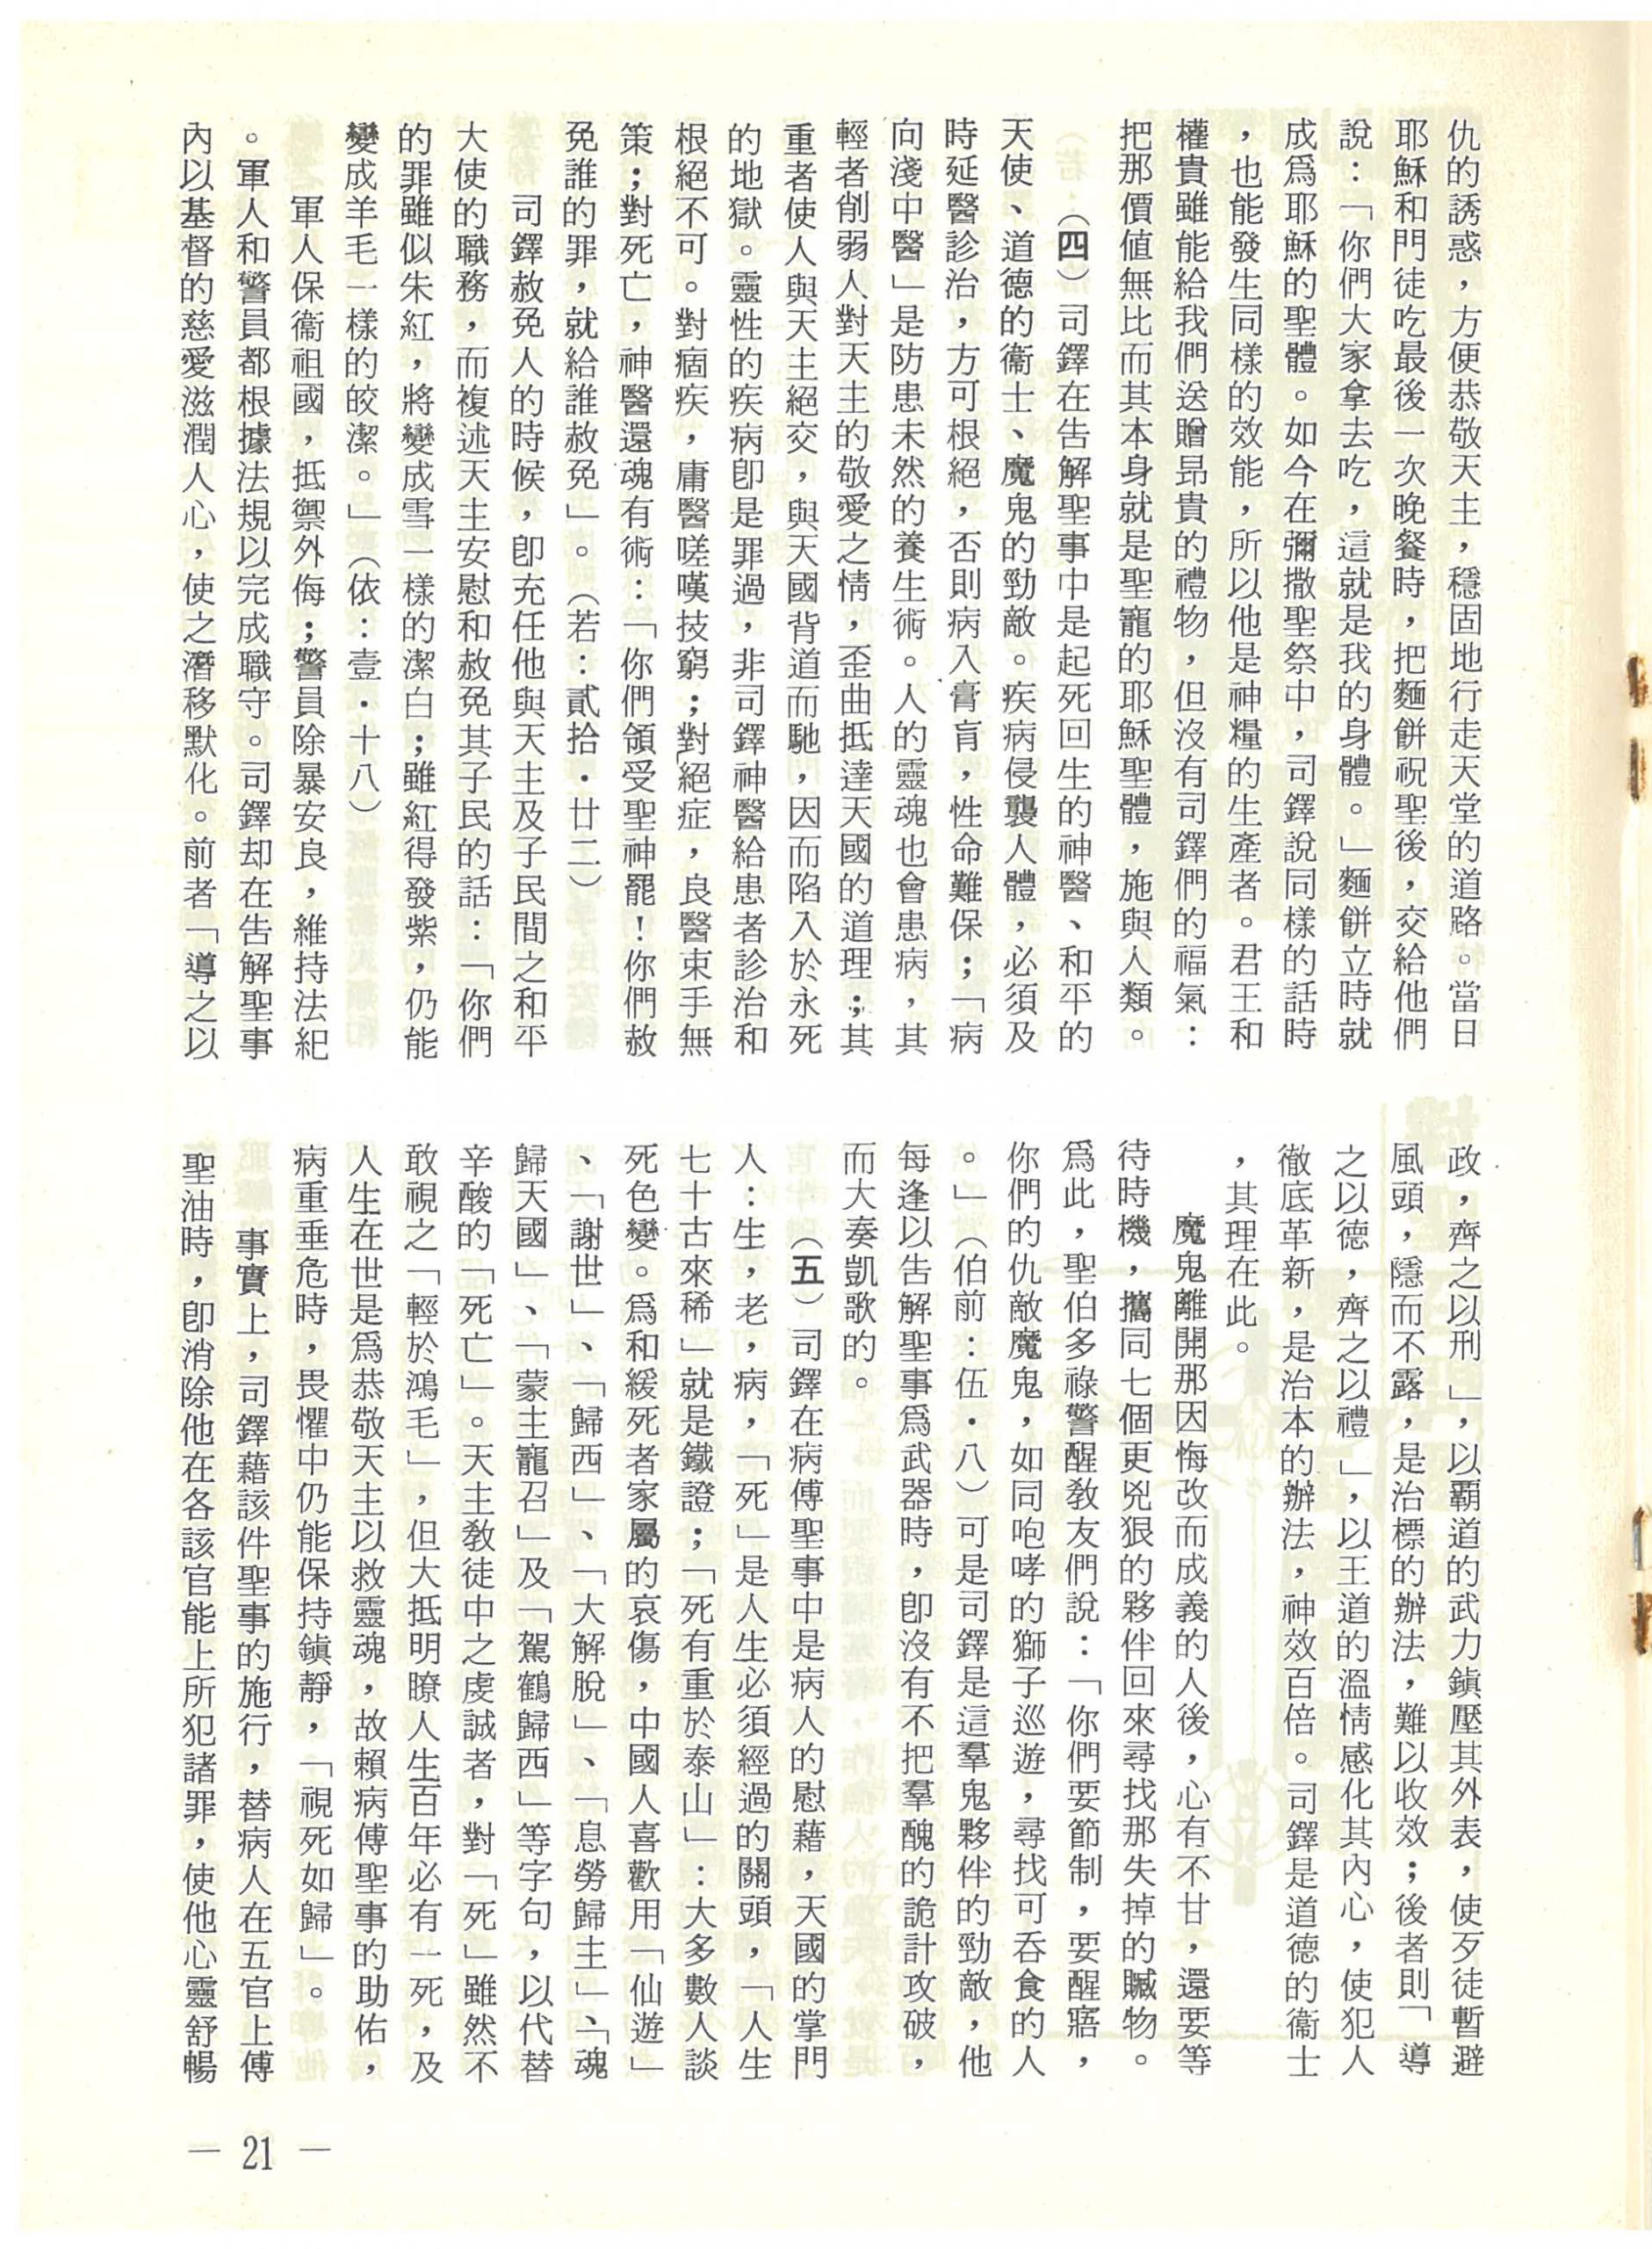 仇的誘惑，方便恭敬天主，穩固地行走天堂的道路。當日
耶穌和門徒吃最後一次晚餐時，把麵餅祝聖後，交給他們
說：「你們大家拿去吃，這就是我的身體。」麵餅立時就
成爲耶穌的聖體。如今在彌撒聖祭中，司鐸說同樣的話時
，也能發生同樣的效能，所以他是神糧的生產者。君王和
權貴雖能給我們送贈昂貴的禮物，但沒有司鐸們的福氣：
把那價値無比而其本身就是聖寵的耶穌聖體，施與人類。
（四）司鐸在告解聖事中是起死回生的神醫、和平的
天使、道德的衞士、魔鬼的勁敵。疾病侵襲人體，必須及
時延醫診治，方可根絕，否則病入膏肓，性命難保；「病
向淺中醫」是防患未然的養生術。人的靈魂也會患病，其
輕者削弱人對天主的敬愛之情，歪曲抵達天國的道理；其
重者使人與天主絕交，與天國背道而馳，因而陷入於永死
的地獄。靈性的疾病卽是罪過，非司鐸神醫給患者診治和
根絕不可。對痼疾，庸醫嗟嘆技窮；對絕症，良醫束手無
策；對死亡，神醫還魂有術：「你們領受聖神罷！你們赦
免誰的罪，就給誰赦免」。（若：貳拾．廿二）
司鐸赦免人的時候，卽充任他與天主及子民間之和平
大使的職務，而複述天主安慰和赦免其子民的話：「你們
的罪雖似朱紅，將變成雪一樣的潔白；雖紅得發紫，仍能
變成羊毛一樣的皎潔。」（依：壹．十八）
軍人保衞祖國，抵禦外侮；警員除暴安良，維持法紀
。軍人和警員都根據法規以完成職守。司鐸却在告解聖事
內以基督的慈愛滋潤人心，使之潛移默化。前者「導之以
政，齊之以刑」，以霸道的武力鎭壓其外表，使歹徒暫避
風頭，隱而不露，是治標的辦法，難以收效；後者則「導
之以德，齊之以禮」，以王道的溫情感化其內心，使犯人
徹底革新，是治本的辦法，神效百倍。司鐸是道德的衞士
，其理在此。
魔鬼離開那因悔改而成義的人後，心有不甘，還要等
待時機，攜同七個更兇狠的夥伴回來尋找那失掉的贓物。
爲此，聖伯多祿警醒敎友們說：「你們要節制，要醒寤，
你們的仇敵魔鬼，如同咆哮的獅子巡遊，尋找可吞食的人
。」（伯前：伍．八）可是司鐸是這羣鬼夥伴的勁敵，他
每逢以告解聖事爲武器時，卽沒有不把羣醜的詭計攻破，
而大奏凱歌的。
（五）司鐸在病傅聖事中是病人的慰藉，天國的掌門
人：生，老，病，「死」是人生必須經過的關頭，「人生
七十古來稀」就是鐵證；「死有重於泰山」：大多數人談
死色變。爲和緩死者家屬的哀傷，中國人喜歡用「仙遊」
、「謝世」、「歸西」、「大解脫」、「息勞歸主」、「魂
歸天國」、「蒙主寵召」及「駕鶴歸西」等字句，以代替
辛酸的「死亡」。天主敎徒中之虔誠者，對「死」雖然不
敢視之「輕於鴻毛」，但大抵明瞭人生百年必有一死，及
人生在世是爲恭敬天主以救靈魂，故賴病傅聖事的助佑，
病重垂危時，畏懼中仍能保持鎭靜，「視死如歸」。
事實上，司鐸藉該件聖事的施行，替病人在五官上傅
聖油時，卽消除他在各該官能上所犯諸罪，使他心靈舒暢
— 21 —